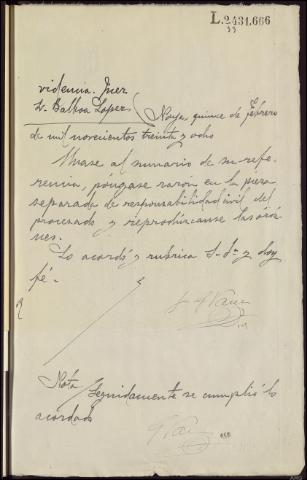 L.2431.666
videncia. Juez
Sr. Balboa Lopez
Noya, quince de Febrero
de mil novecientos treinta y ocho
Unase al sumario de su refe-
rencia, póngase razón en la pieza
separada de responsabilidad civil del
procesado y reprodúzcanse las órde
nes.
Lo acordó y rubrica S. Sª. y doy
fé.-
Nota
Seguidamente se cumplió lo
acordado